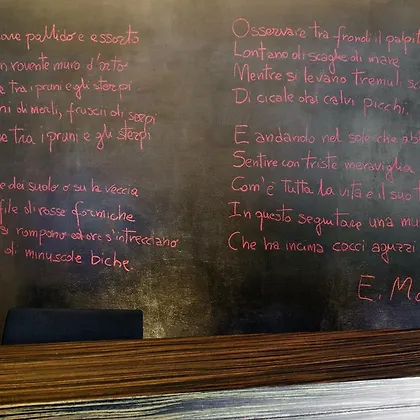 are pallido e assorto
n rovente muro d'orto
e tra i pruni e gli sterpi
ni di merli, fruscii di serpi
e tra i pruni e gli sterpi
e del suolo o su la veccia
file di rosse formiche
si rompono ed ore s'intrecciano
di minuscole biche
Osservare tra frondi il palpit
Lontano di scaglie di mare
Mentre si levano tremuli sc
Di cicale dai calvi picchi.
E andando nel sole che abb
Sentire con triste meraviglia
Com'è tutta la vita e il suo t
In questo seguitare una mu
Che ha in cima cocci aguzzi
E. M.